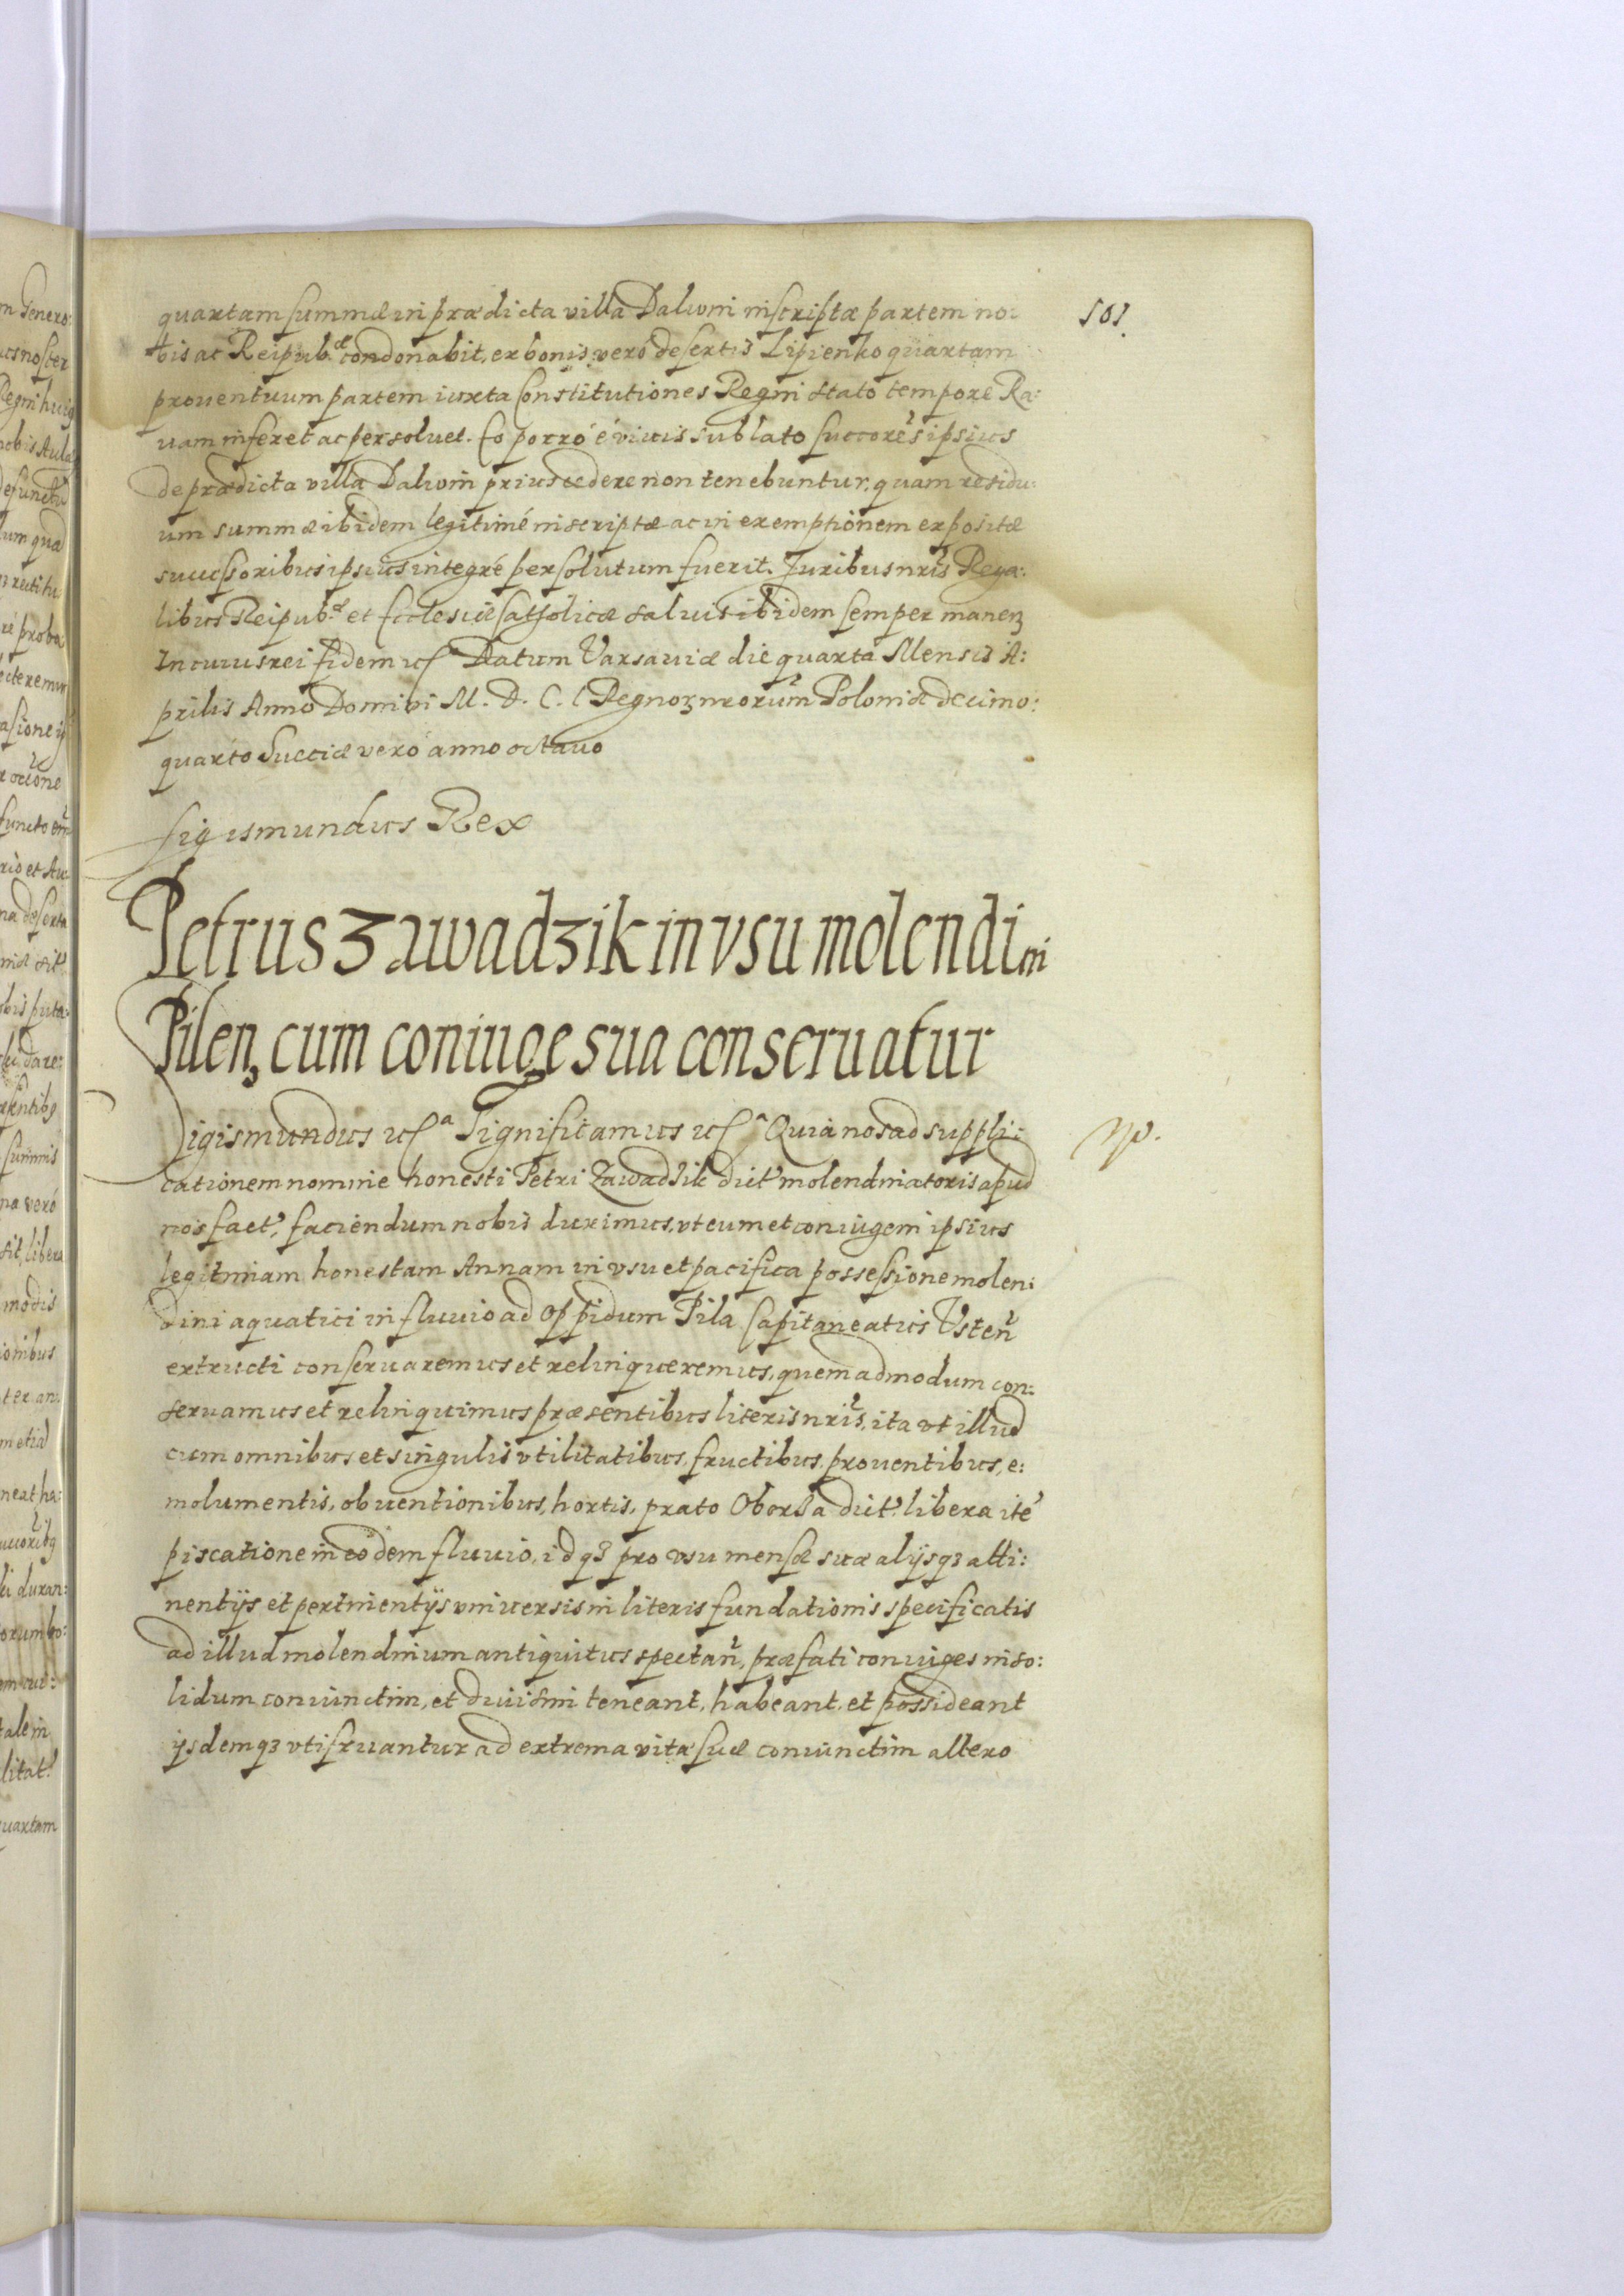 501.
quartam summæ in prædicta villa Daluvin inscriptæ partem no:
bis ac Reipub.æ condonabit, ex bonis veró desertis Lipienko quartam
prouentuum partem iuxta Constitutiones Regni stato tempore Ra:
uam inferet ac persoluet. Eo porró é viuis sublato succores ipsius
de prædicta villa Daluvin prius cedere non tenebuntur, quam residu:
um summæ ibidem legitimé inscriptæ ac in exemptionem expositæ
successoribus ipsius integré persolutum fuerit. Juribus nris Rega:
libus Reipub.æ et Ecclesiæ Catholicæ saluis ibidem semper manenʒ
In cuius rei fidem etc.a Datum Varsauiæ die quarta Mensis A:
prilis Anno Domini M. D. C. C Regnoʒ nrorum Poloniæ decimo:
quarto Sueciæ veró anno octauo
Sigismundus Rex
Petrus Zawadzik in vsu molendini
Pilenʒ cum coniuge sua conseruatur
Sigismundus etc.a Significamus etc.a Quia nos ad suppli:
cationem nomine honesti Petri Zawadsik dict' molendinatoris apud
nos fact', faciendum nobis duximus, vt eum et coniugem ipsius
legitimam honestam Annam in vsu et pacifica possessione molen:
dini aquatici in fluuio ad Oppidum Pila Capitaneatus Vsten
extructi conseruaremus et relinqueremus, quemadmodum con:
seruamus et relinquimus præsentibus literis nris, ita vt illud
cum omnibus et singulis vtilitatibus, fructibus, prouentibus, e:
molumentis, obuentionibus, hortis, prato Oborsa dict' libera ité
piscatione in eodem fluuio, idqʒ pro vsu mensæ suæ alijsqʒ atti:
nentijs et pertinentijs vniuersis in literis fundationis specificatis
ad illud molendinum antiquitus spectan, præfati coniuges in so:
lidum coniunctim, et diuisim teneant, habeant, et possideant
ijsdemqʒ vti fruantur ad extrema vitæ suæ coniunctim altero